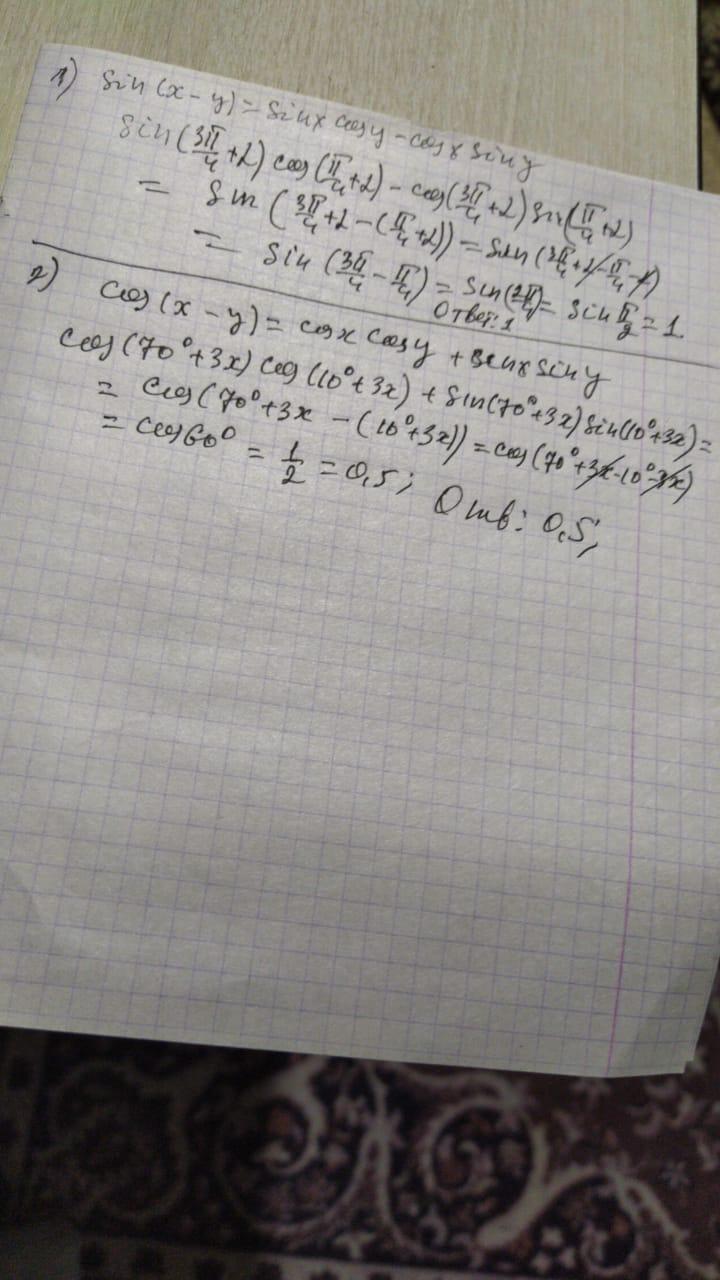 1) sin(x-y)=sinx cosy-cosx siny
sin(3π/4+2) cos(π/4+2)-cos(3π/4+2) sin(π/4+2)
= sin(3π/4+2-(π/4+2))=sin(3π/4+2-π/4-2)
= sin(3π/4-π/4)=sin(2π/4)=sin π/2=1
Ответ: 1
2) cos(x-y)=cosx cosy+sinx siny
cos(70°+3x) cos(10°+3x)+sin(70°+3x)sin(10°+3x)=
= cos(70°+3x-(10°+3x))=cos(70°+3x-10°-3x)
= cos60°=1/2=0,5; Отв: 0,5;